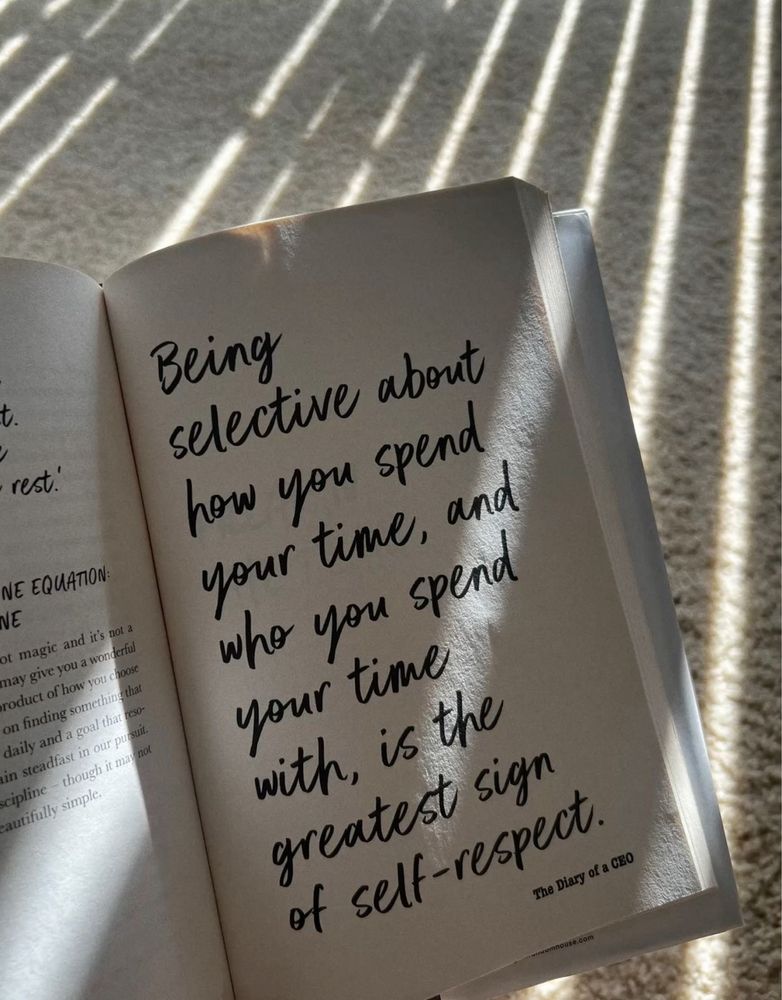 t.
rest.'
NE EQUATION:
NE
ot magic and it's not a
may give you a wonderful
product of how you choose
on finding something that
daily and a goal that reso-
ain steadfast in our pursuit.
scipline – though it may not
eautifully simple.
Being
selective about
how you spend
your time, and
who you spend
your time
with, is the
greatest sign
of self-respect.
The Diary of a CEO
ndomhouse.com